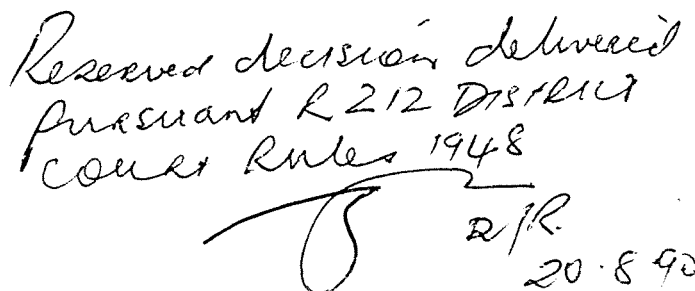 Reserved decision delivered
pursuant R 212 District
Court Rules 1948
D/R.
20.8.90